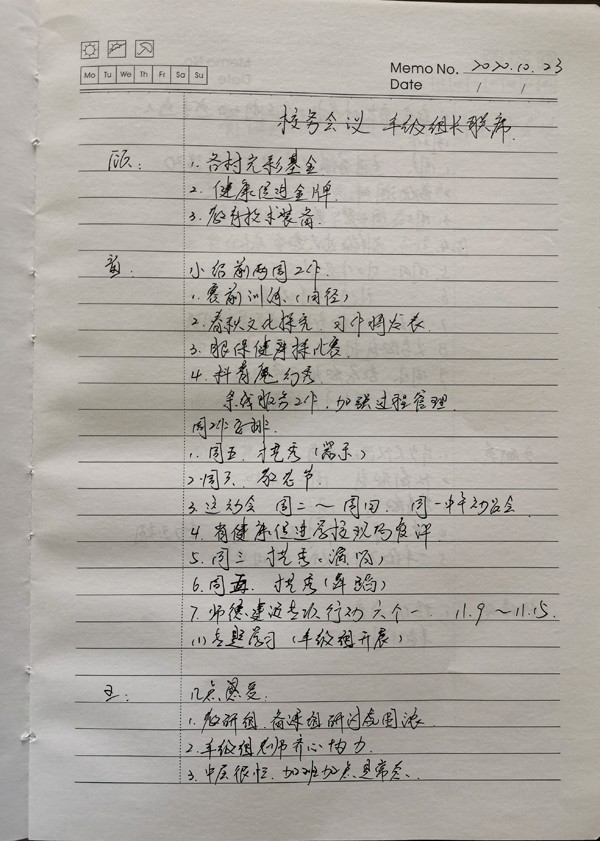 Mo Tu We Th Fr Sa Su
Memo No. 2020.10.23
Date / /
校务会议 年级组长联席.
顾: 1. 各村光彩基金
2. 健康促进金牌.
3. 教育技术装备.
黄. 小结前两周工作.
1. 赛前训练(田径)
2. 春秋文化探究 习作将发表.
3. 眼保健操比赛.
4. 科普魔幻秀
条线服务工作, 加强过程管理.
周工作安排.
1. 周五. 搭秀()
2. 周日. 敬老节
3. 运动会 周二～周四. 周一中午动员会
4. 省健康促进学校现场复评
5. 周三 搭秀()
6. 周五. 搭秀()
7. 师德建设专项行动 六个一 11.9～11.15.
(1) 专题学习(年级组开展)
王: 几点感受.
1. 教研组、备课组研讨氛围浓.
2. 年级组老师齐心协力.
3. 中层很忙. 加班加点是常态.